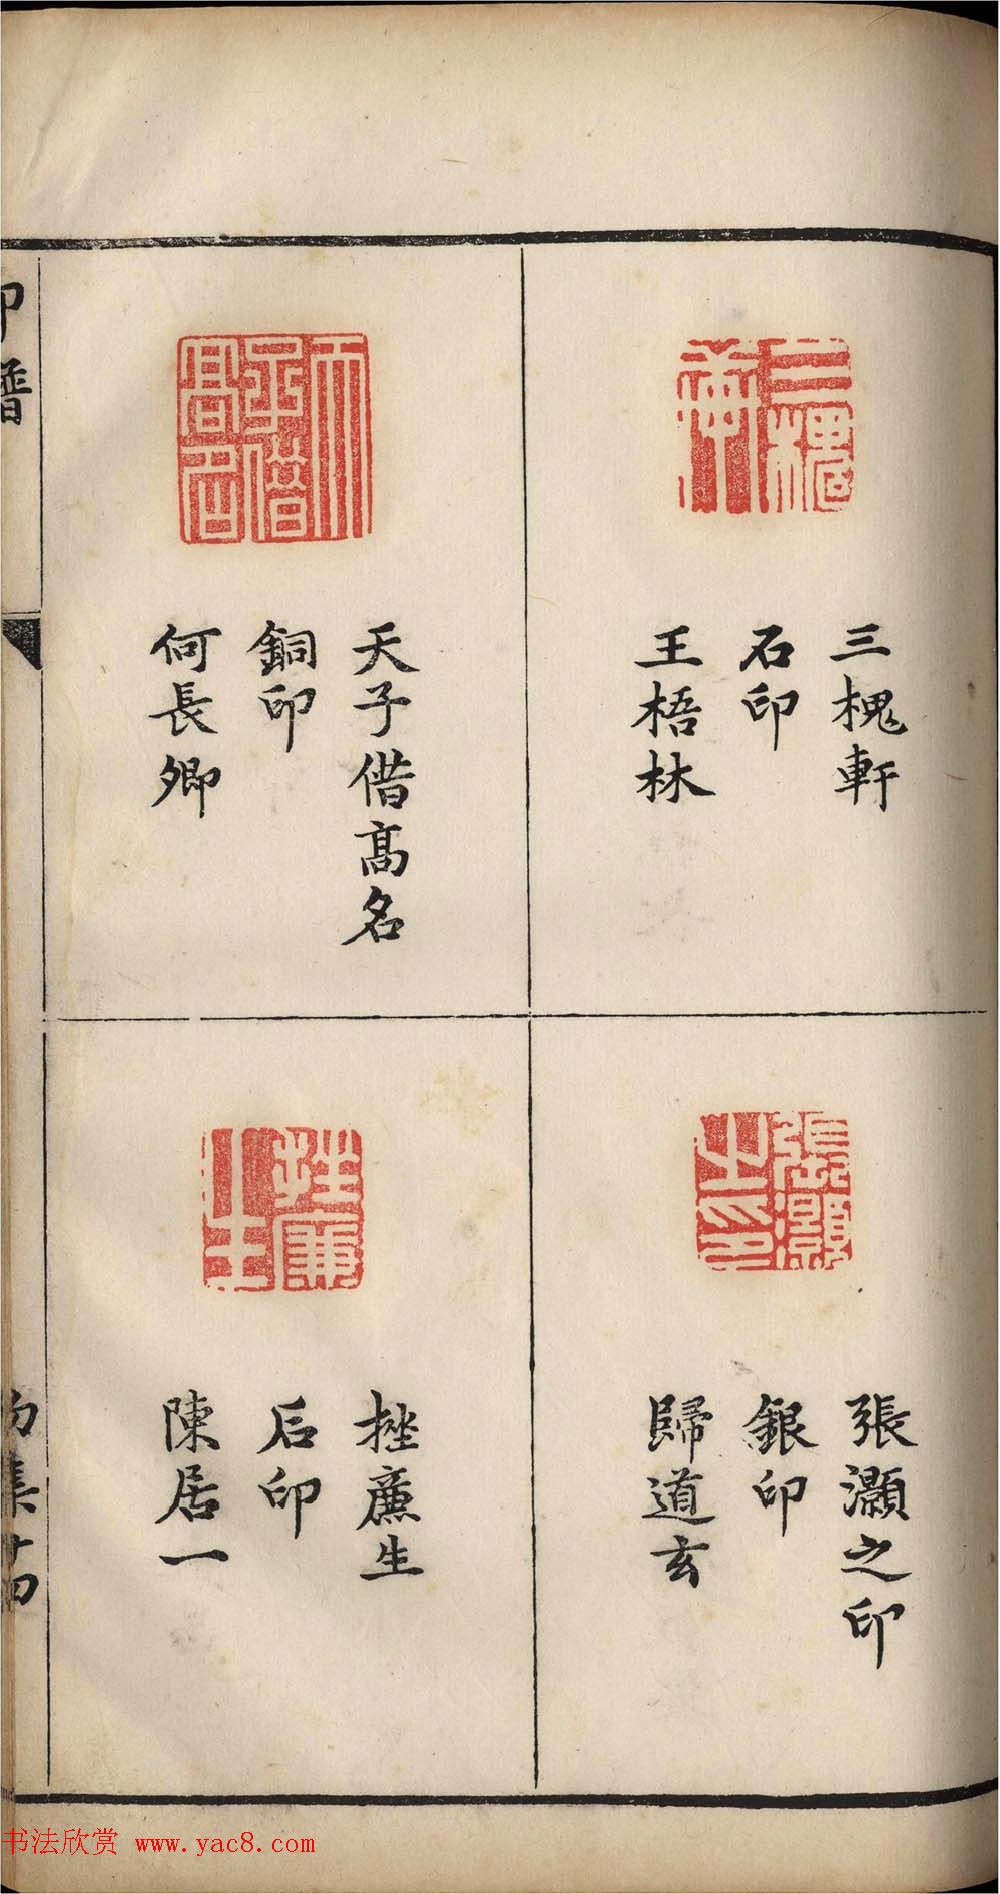 三槐軒
石印
王梧林
張灝之印
銀印
歸道玄
天子借髙名
銅印
何長卿
挫廉生
石印
陳居一
印譜
集十四
书法欣赏 www.yac8.com